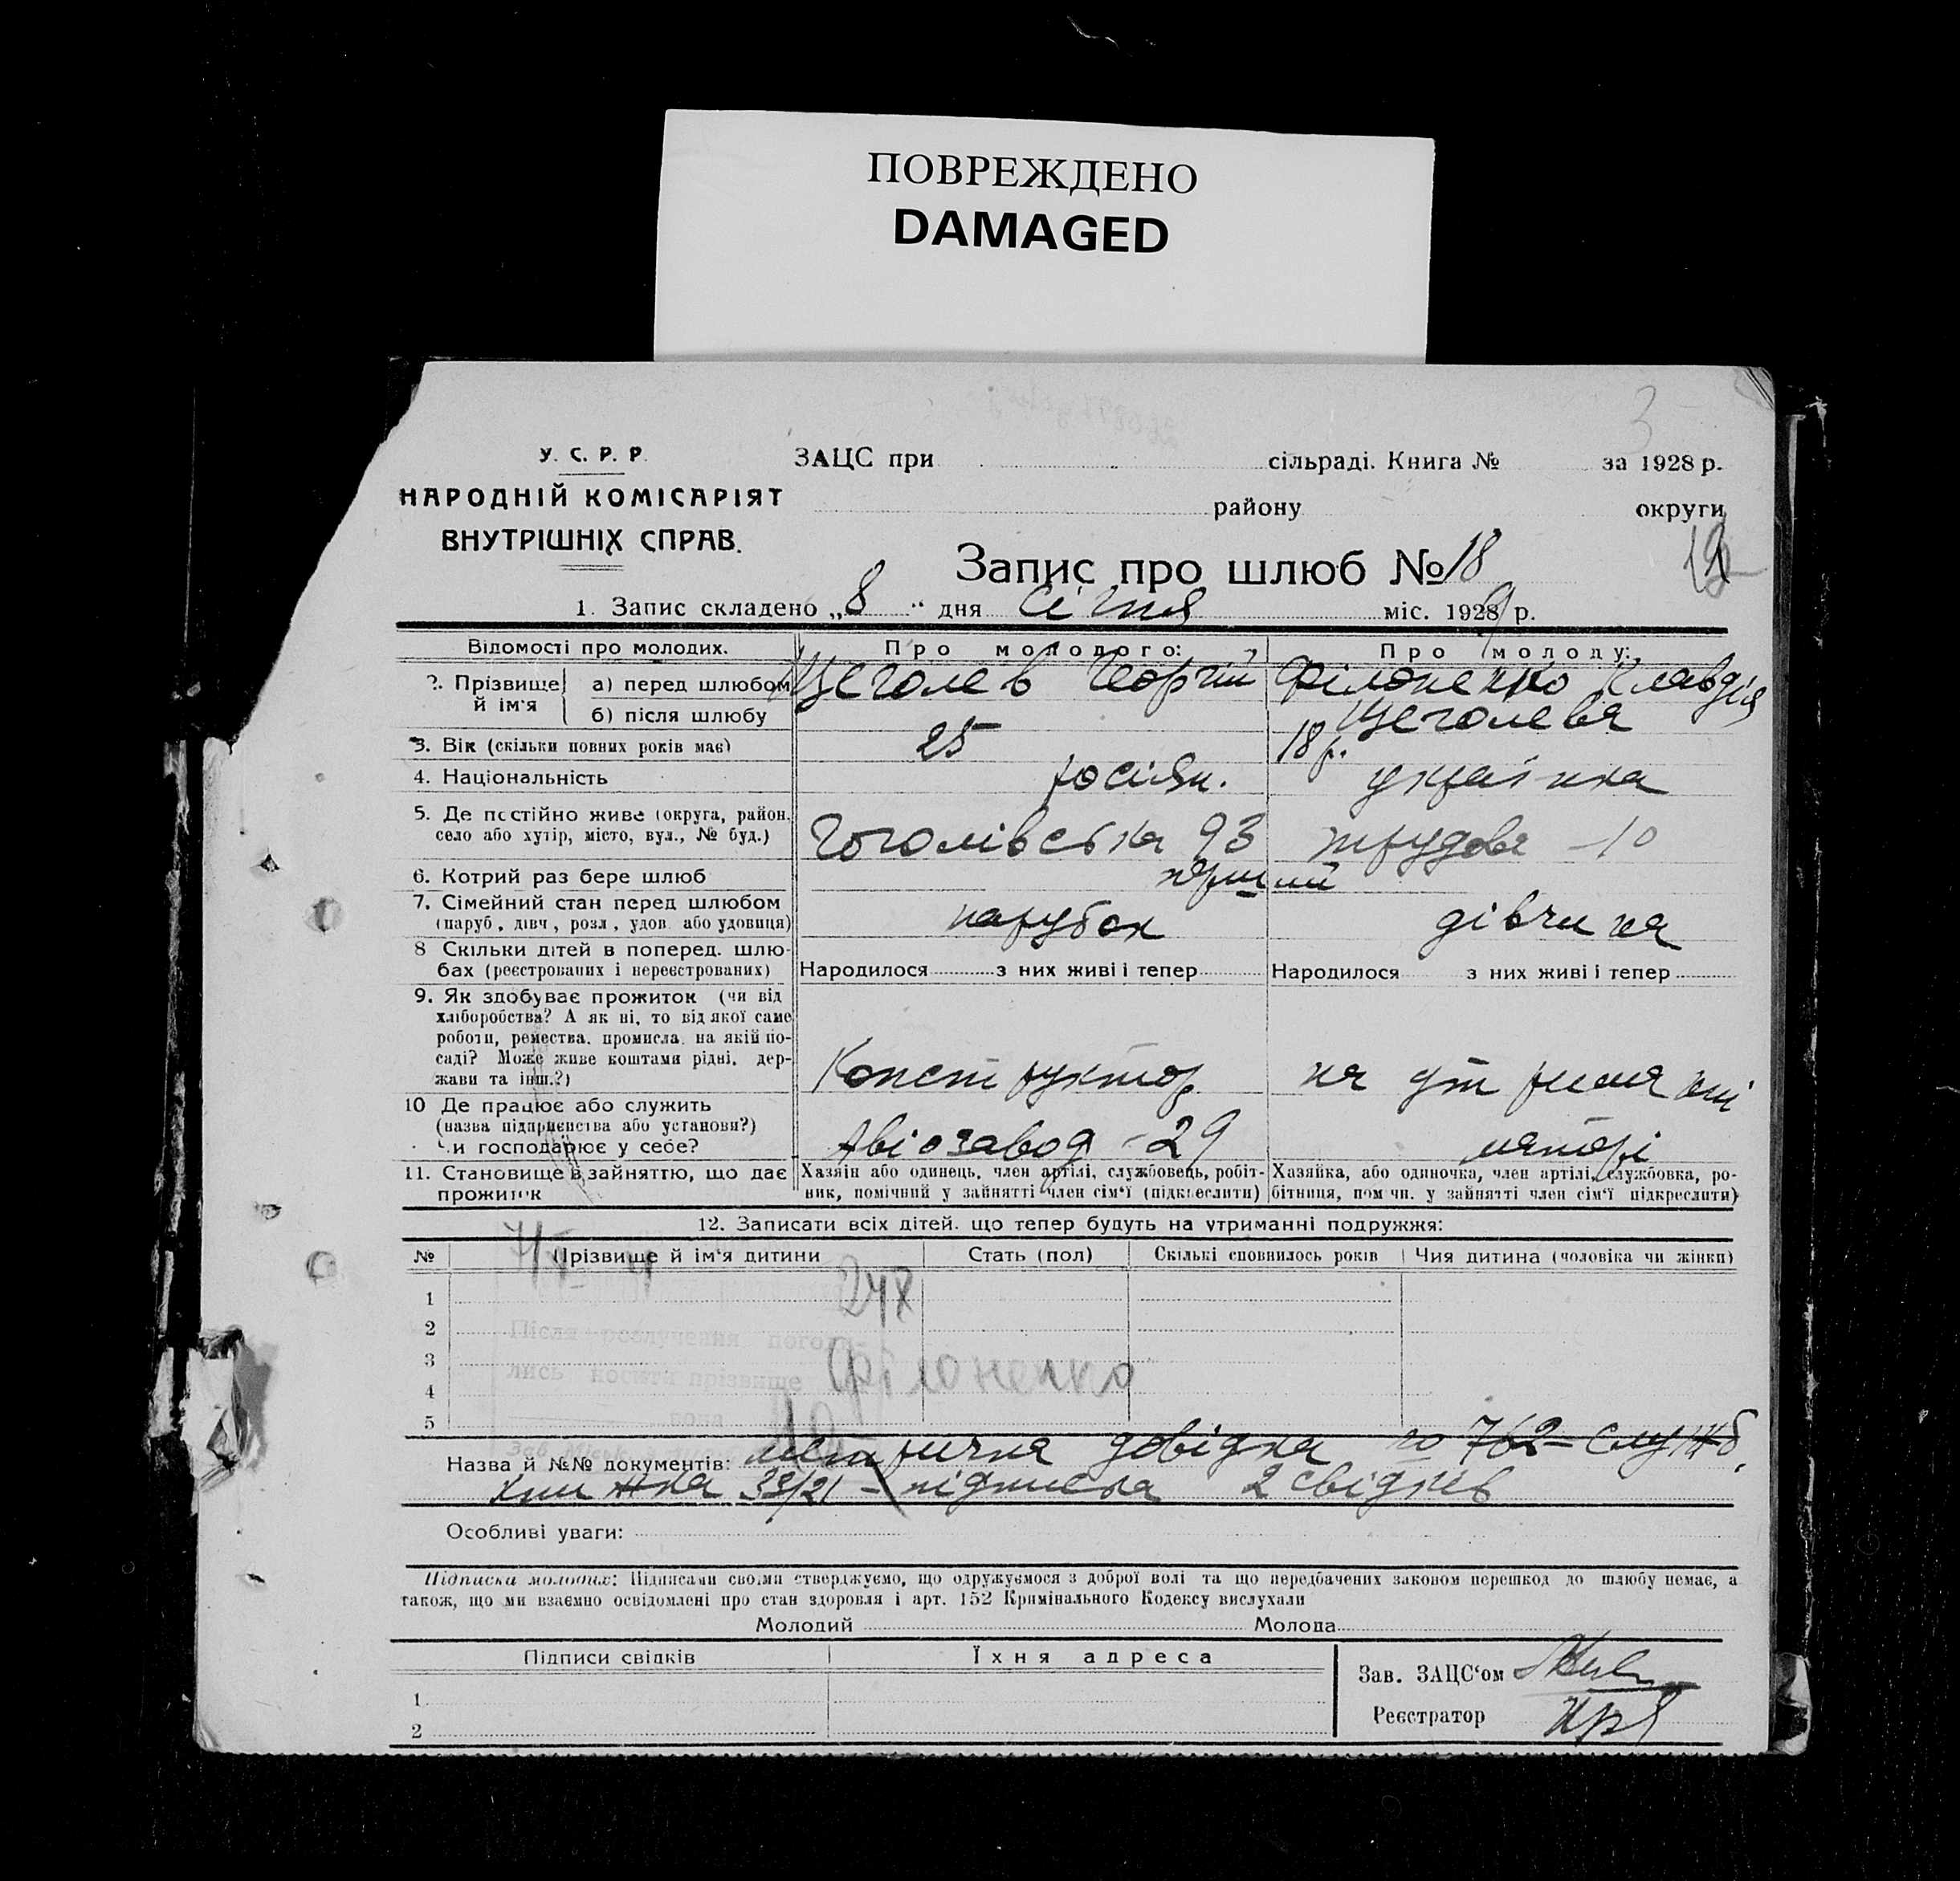 ПОВРЕЖДЕНО
DAMAGED
3
У. С. Р. Р.
НАРОДНІЙ КОМІСАРІЯТ
ВНУТРІШНІХ СПРАВ.
ЗАЦС при сільраді. Книга № за 1928 р.
району округи
Запис про шлюб № 18
1. Запис складено „8“ дня січня міс. 1929 р.
Відомості про молодих. Про молодого: Про молоду:
2. Прізвище й ім'я
а) перед шлюбом Щеголев Георгій Філоненко Клавдія
б) після шлюбу Щеголева
3. Вік (скільки повних років має) 25 18 р.
4. Національність росіян. українка
5. Де постійно живе (округа, район, село або хутір, місто, вул., № буд.) Гоголівська 93 трудова - 10
6. Котрий раз бере шлюб перший
7. Сімейний стан перед шлюбом
(паруб., дівч., розл., удов. або удовиця) парубок дівчина
8 Скільки дітей в поперед. шлю-
бах (реєстрованих і нереєстрованих) Народилося з них живі і тепер Народилося з них живі і тепер
9. Як здобуває прожиток (чи від
хліборобства? А як ні, то від якої саме
роботи, ремества, промисла, на якій по-
саді? Може живе коштами рідні, дер-
жави та інш.?) Конструктор на утриманні
10 Де працює або служить
(назва підприємства або установи?)
Чи господарює у себе? Авіозавод - 29 матері
11. Становище в зайняттю, що дає
прожиток
Хазяїн або одинець, член артілі, службовець, робіт-
ник, помічний у зайнятті член сім'ї (підкреслити)
Хазяйка, або одиночка, член артілі, службовка, ро-
бітниця, пом чн. у зайнятті член сім'ї підкреслити)
12. Записати всіх дітей, що тепер будуть на утриманні подружжя:
№ Прізвище й ім'я дитини Стать (пол) Скількі сповнилось років Чия дитина (чоловіка чи жінки)
1
2
Після розлучення погоди-
3
лись носити прізвище Філоненко
4
вона
5
Назва й №№ документів: метрична довідка го 762 - служб.
книжка 33/21 - підписка 2 свідків
Особливі уваги:
Підписка молодих: Підписами своїми стверджуємо, що одружуємося з доброї волі та що передбачених законом перешкод до шлюбу немає, а
також, що ми взаємно освідомлені про стан здоровля і арт. 152 Кримінального Кодексу вислухали
Молодий Молода
Підписи свідків Їхня адреса
Зав. ЗАЦС'ом
1
Реєстратор
2